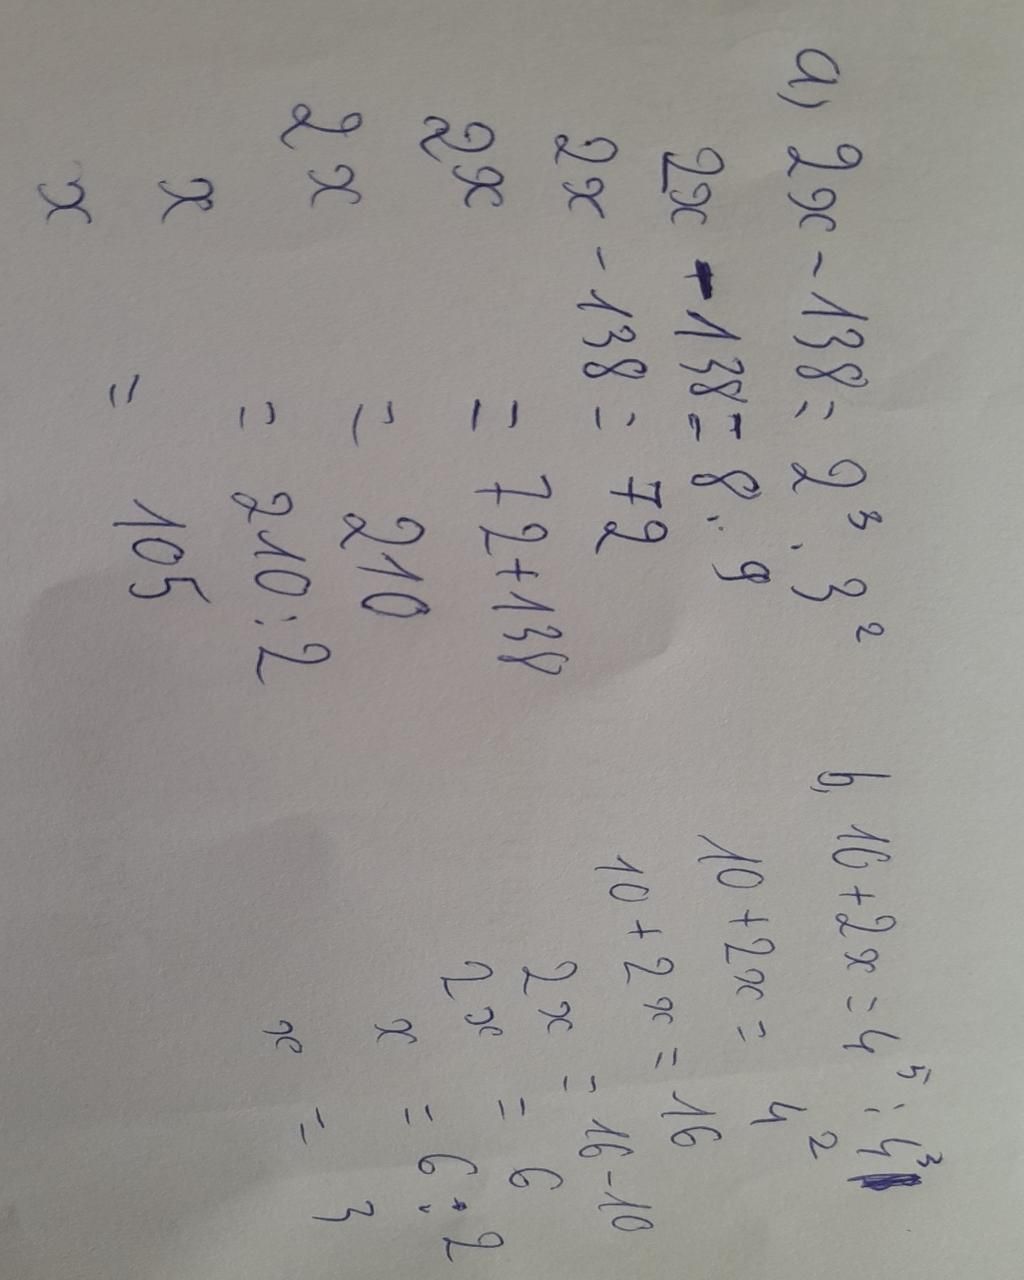 a, 2x - 138 = 2³ . 3²
2x - 138 = 8 . 9
2x - 138 = 72
2x = 72 + 138
2x = 210
x = 210 : 2
x = 105
b, 10 + 2x = 4⁵ : 4³
10 + 2x = 4²
10 + 2x = 16
2x = 16 - 10
2x = 6
x = 6 : 2
x = 3